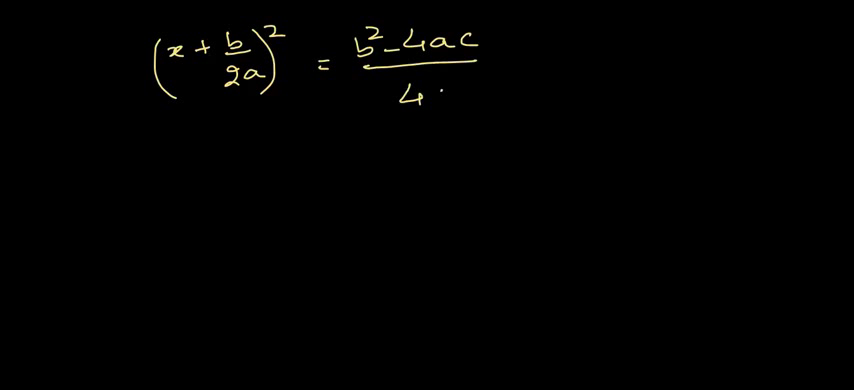 (x + b/2a)² = b² - 4ac / 4